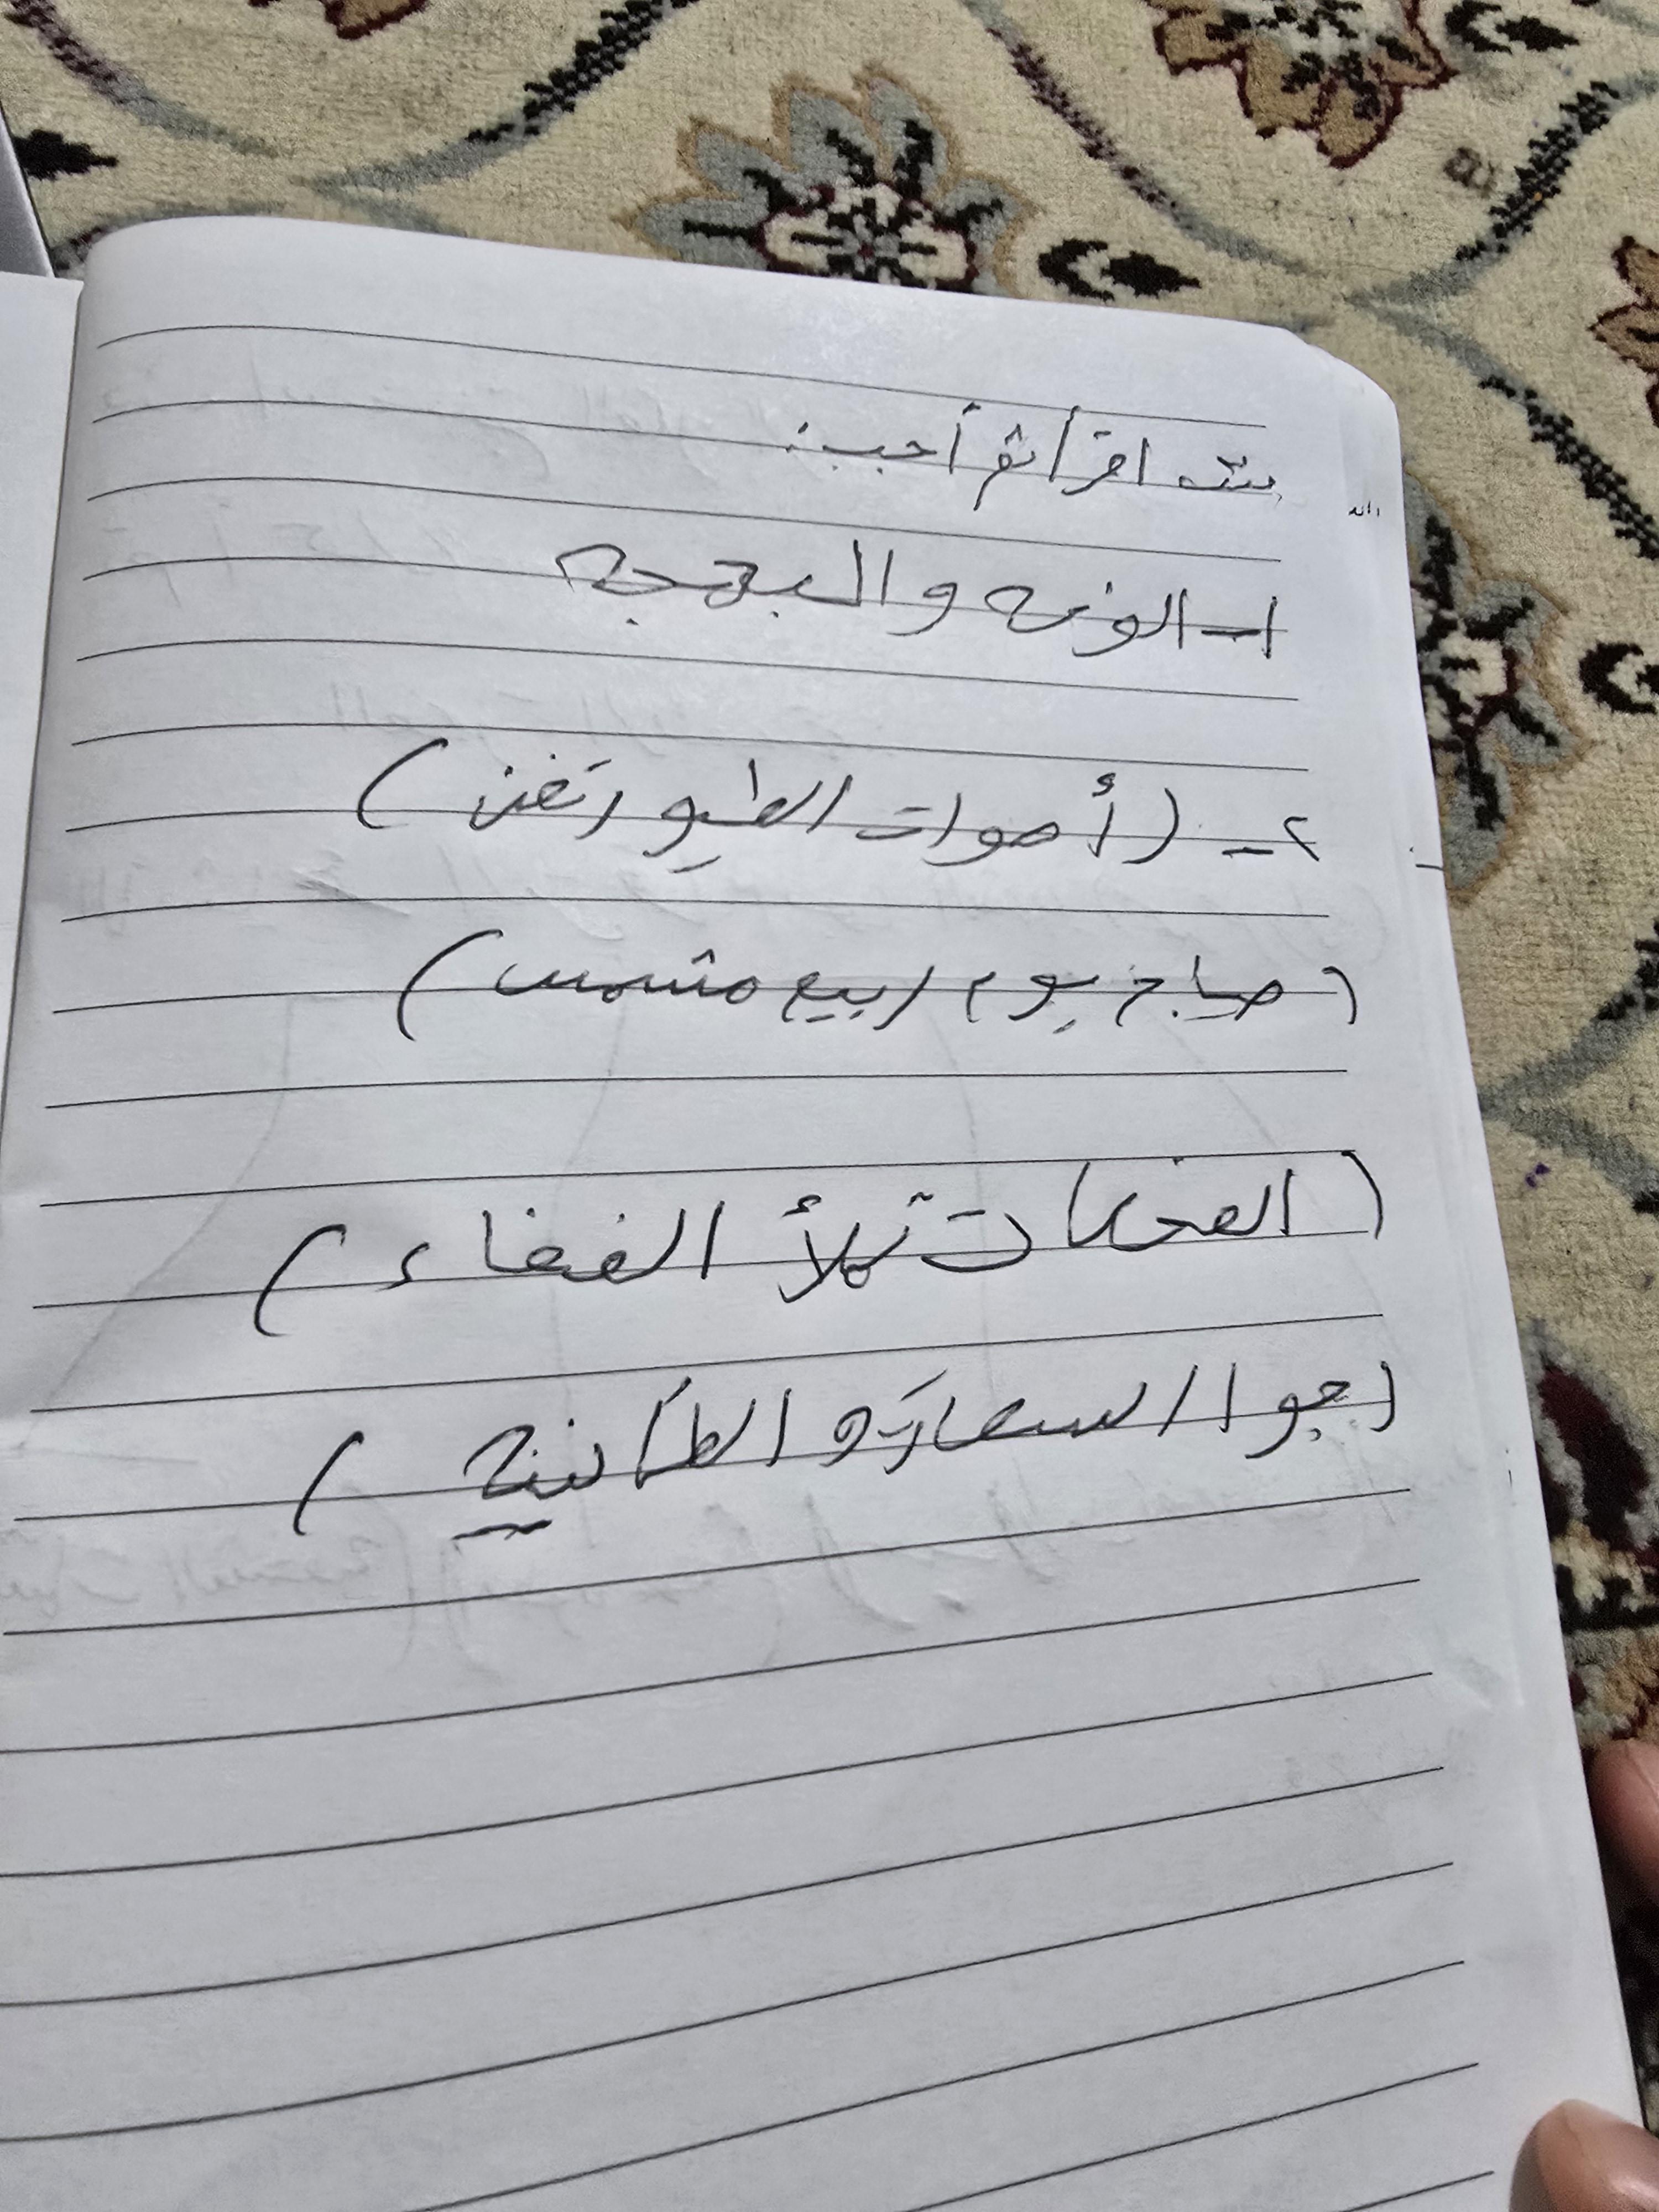 اقرأ ثم أحب:
١- الونه والبهجه
٢- (أصوات الطيور تغن)
(صباح يوم ربيع مشمس)
(الضحكات تملأ الفضاء)
(جوا السعادة و الطمأنينه)